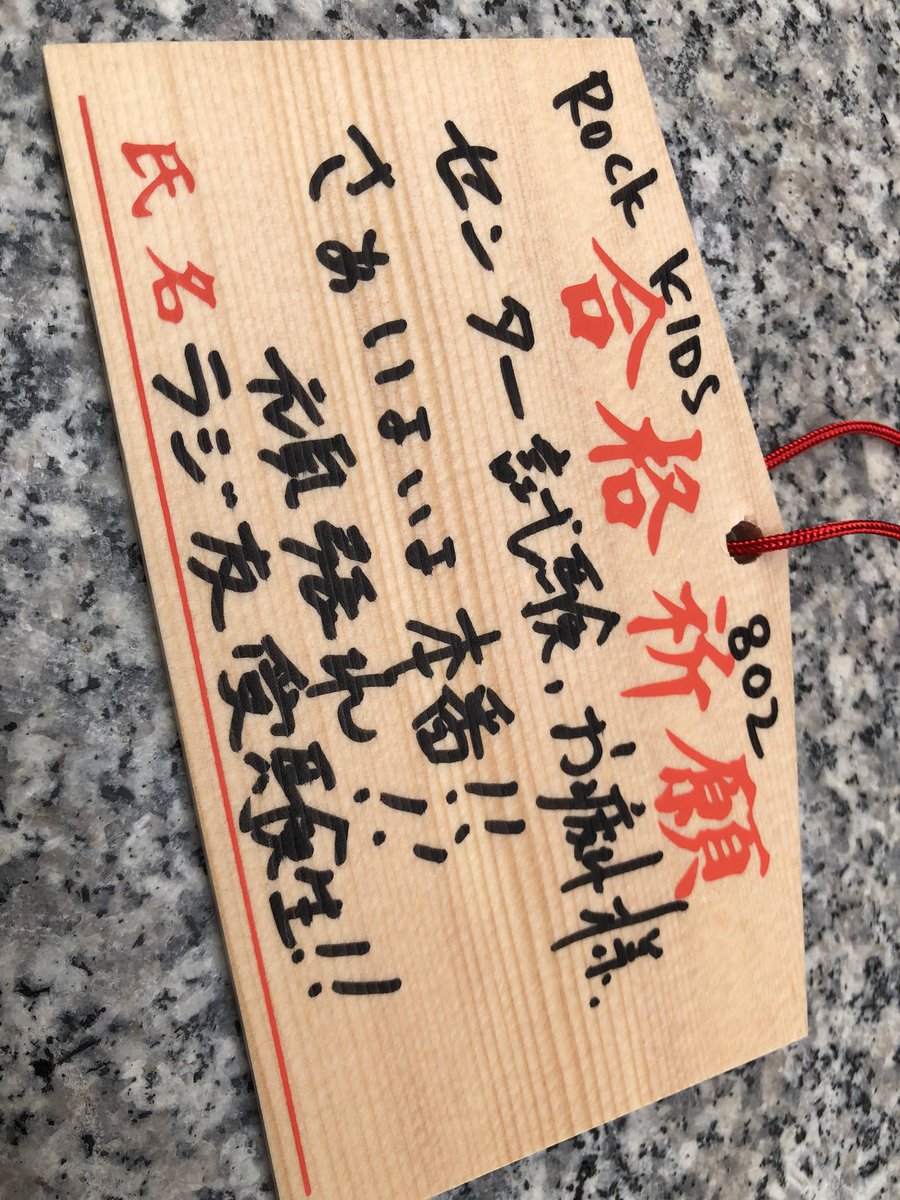 Rock KIDS 802
合格祈願
センター試験、お疲れ様.
さぁ いよいよ 本番!!
頑張れ!!
氏名 ラジ友 受験生!!